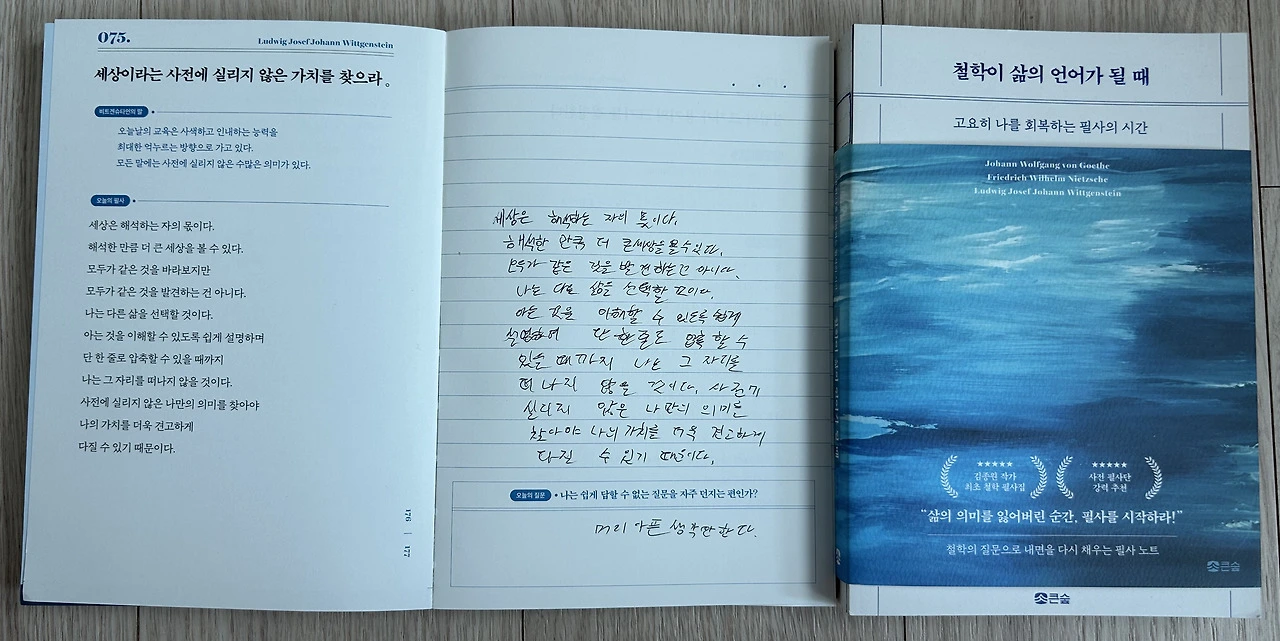 075.
Ludwig Josef Johann Wittgenstein
세상이라는 사전에 실리지 않은 가치를 찾으라.
비트겐슈타인의 말
오늘날의 교육은 사색하고 인내하는 능력을
최대한 억누르는 방향으로 가고 있다.
모든 말에는 사전에 실리지 않은 수많은 의미가 있다.
오늘의 필사
세상은 해석하는 자의 몫이다.
해석한 만큼 더 큰 세상을 볼 수 있다.
모두가 같은 것을 바라보지만
모두가 같은 것을 발견하는 건 아니다.
나는 다른 삶을 선택할 것이다.
아는 것을 이해할 수 있도록 쉽게 설명하며
단 한 줄로 압축할 수 있을 때까지
나는 그 자리를 떠나지 않을 것이다.
사전에 실리지 않은 나만의 의미를 찾아야
나의 가치를 더욱 견고하게
다질 수 있기 때문이다.
176 | 177
세상은 해석하는 자의 몫이다.
해석한 만큼 더 큰세상을 볼수있다.
모두가 같은 것을 발견하는건 아니다.
나는 다른 삶을 선택할 것이다.
아는 것을 이해할 수 있도록 쉽게
설명하며 단 한줄로 압축 할 수
있을 때까지 나는 그 자리를
떠나지 않을 것이다. 사전에
실리지 않은 나만의 의미를
찾아야 나의 가치를 더욱 견고하게
다질 수 있기 때문이다.
오늘의 질문
나는 쉽게 답할 수 없는 질문을 자주 던지는 편인가?
머리 아픈 생각만 한다.
철학이 삶의 언어가 될 때
고요히 나를 회복하는 필사의 시간
Johann Wolfgang von Goethe
Friedrich Wilhelm Nietzsche
Ludwig Josef Johann Wittgenstein
★★★★★
김종원 작가
최초 철학 필사집
★★★★★
사전 필사단
강력 추천
“삶의 의미를 잃어버린 순간, 필사를 시작하라!”
철학의 질문으로 내면을 다시 채우는 필사 노트
큰숲
큰숲